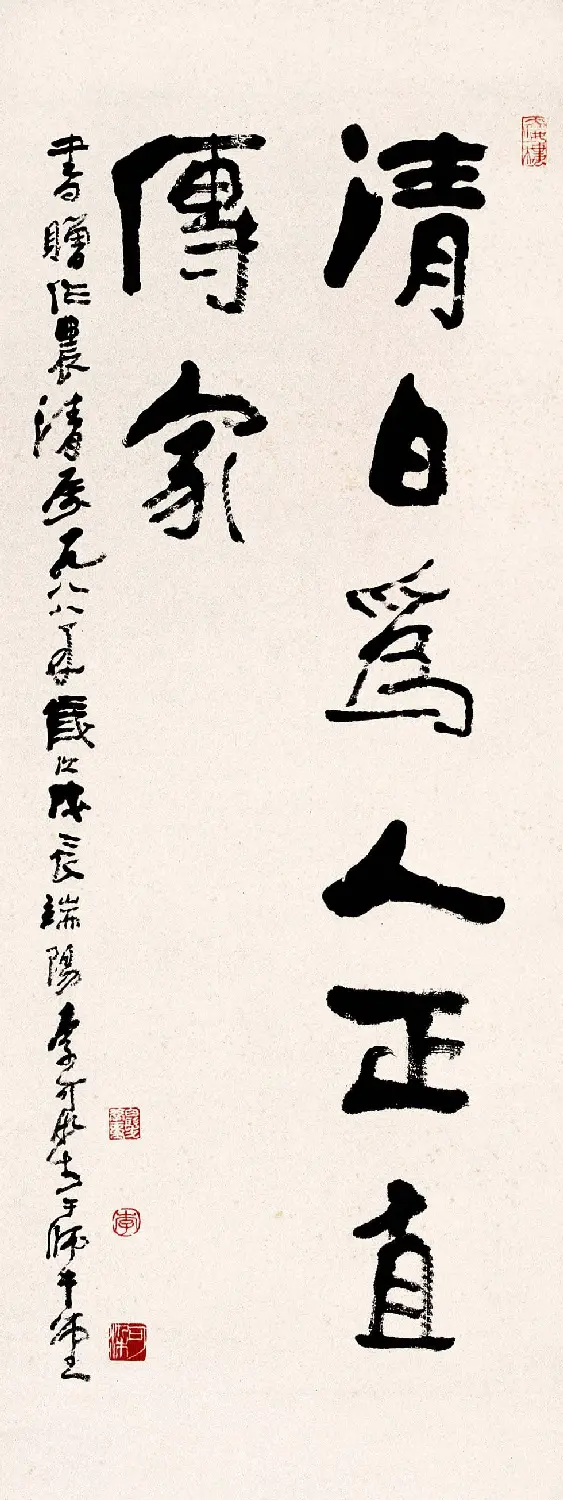 清白為人正直
傳家
書贈作農清玉一九八八年歲次戊辰端陽李可染書于師牛堂
李
可染